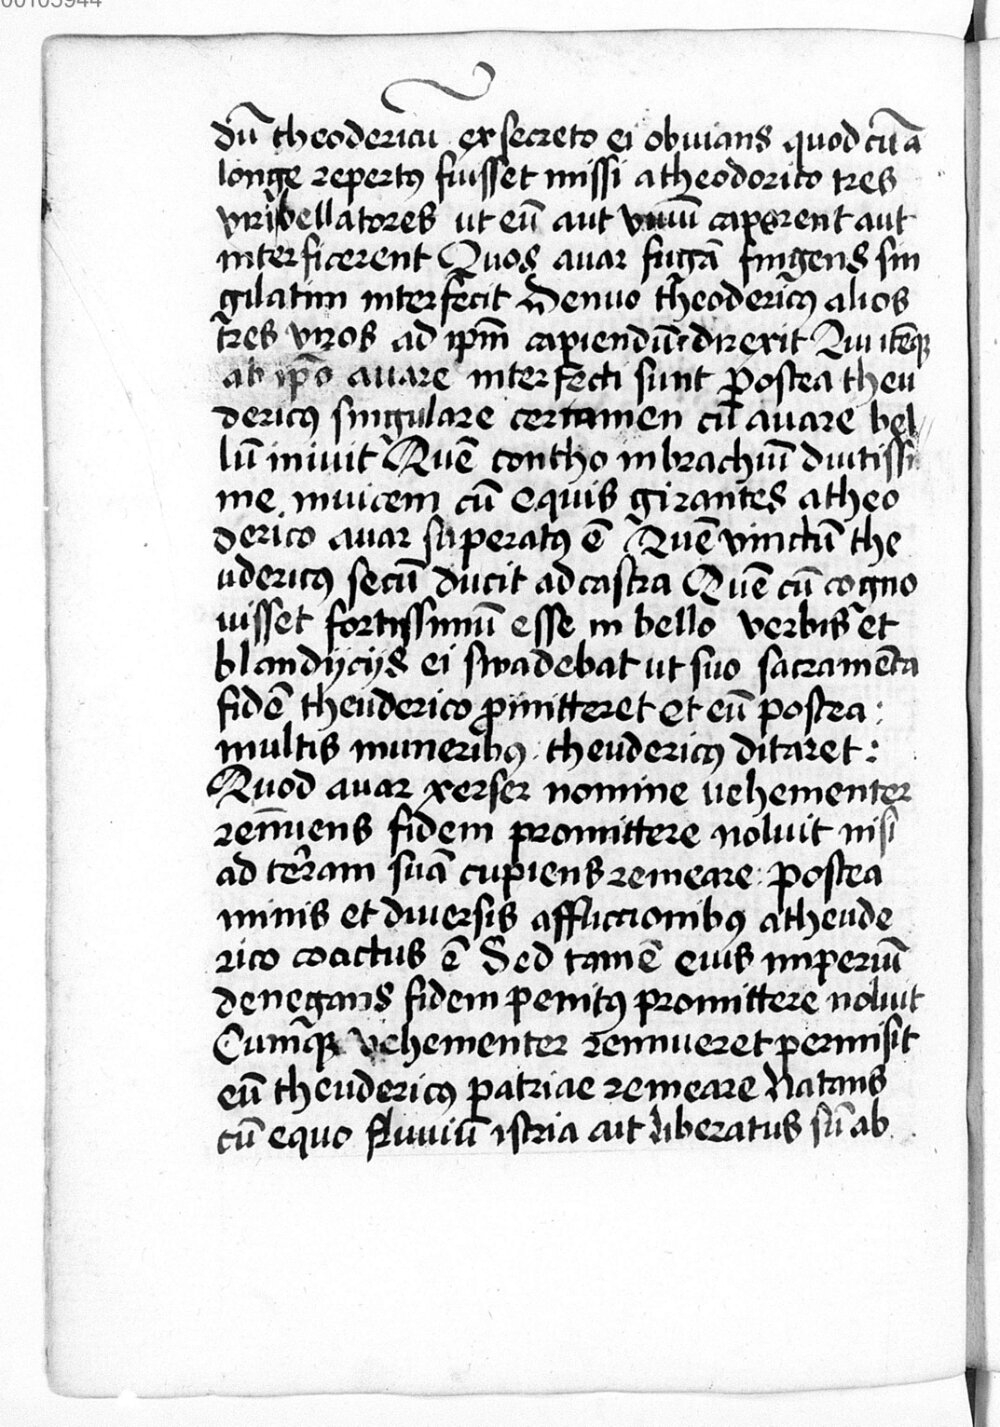 00105944
dū theodericū ex secreto ei obuians quod cū a
longe repertꝯ fuisset missi a theodorico tres
viri bellatores ut eū aut viuū caperent aut
interficerent Quos auar fugā fingens sin
gilatim interfecit Denuo theodericꝯ alios
tres viros ad ip̄m capiendū direxit Qui itēqꝫ
ab ip̄o auare interfecti sunt Postea theu
dericꝯ singulare certamen cū auare bel
lū iniuit Quē contho in brachiū diutissi
me inuicem cū equis girantes a theo
derico auar superatꝯ ē Quē vinctū the
udericꝯ secū ducit ad castra Quē cū cogno
uisset fortissimū esse in bello verbis et
blandycijs ei swadebat ut suo sacramēta
fidē theuderico ꝓmitteret et eū postea :
multis muneribꝯ theudericꝯ ditaret :
Quod auar xerser nomine vehementer
rennuens fidem promittere noluit nisi
ad terram suā cupiens remeare postea
minis et diuersis affliccionibꝯ a theude
rico coactus ē Sed tamē eius imperiū
denegans fidem penitꝯ promittere noluit
Cumqꝫ vehementer rennueret permisit
eū theudericꝯ patriae remeare Natans
cū equo fluuiū istria ait liberatus sū ab